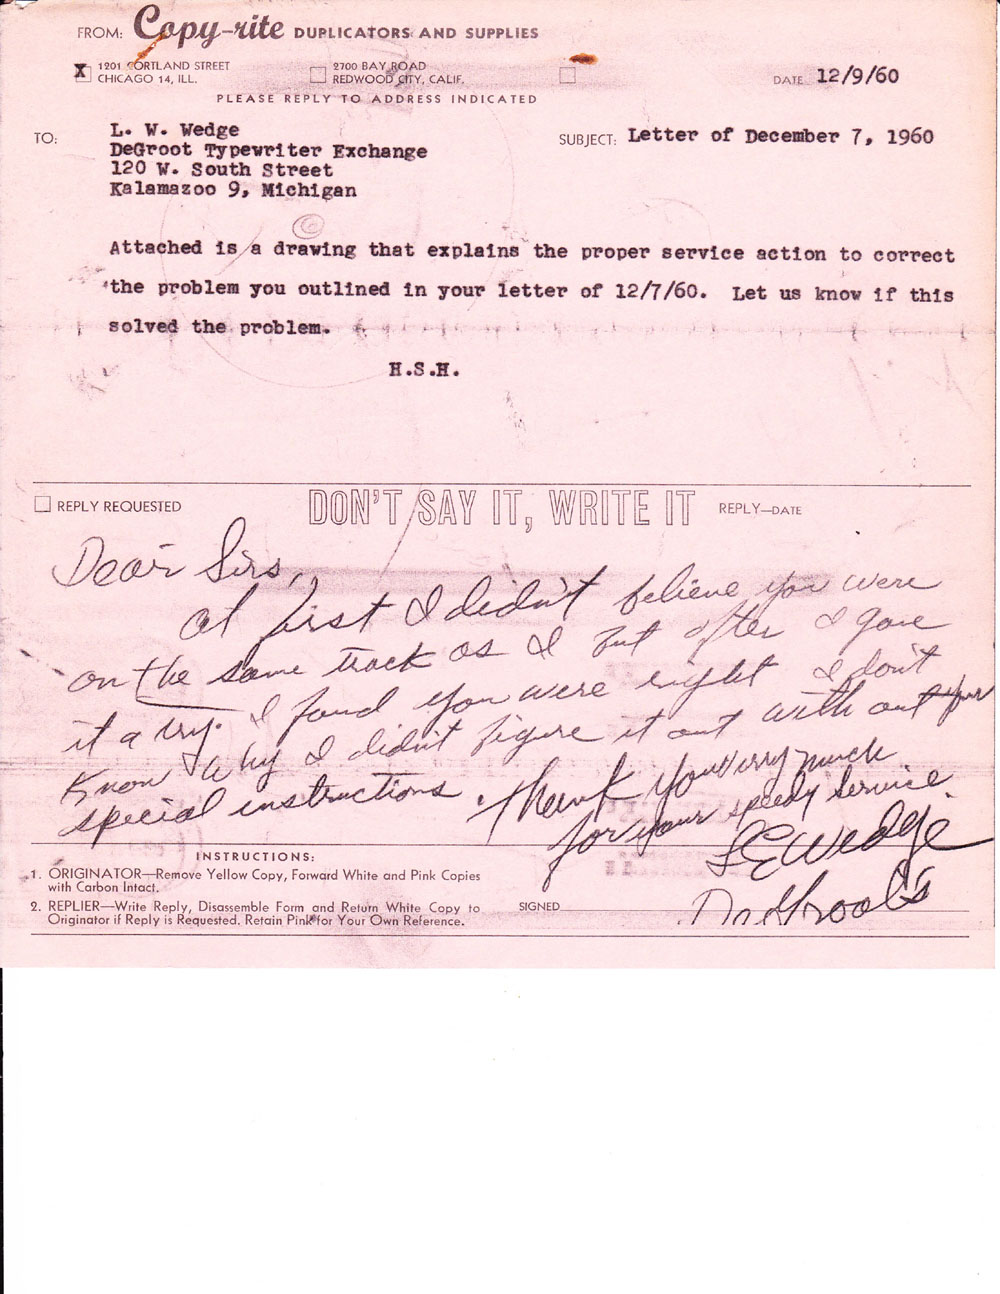 FROM: Copy-rite DUPLICATORS AND SUPPLIES
X 1201 CORTLAND STREET
CHICAGO 14, ILL.
2700 BAY ROAD
REDWOOD CITY, CALIF.
DATE 12/9/60
PLEASE REPLY TO ADDRESS INDICATED
TO: L. W. Wedge
DeGroot Typewriter Exchange
120 W. South Street
Kalamazoo 9, Michigan
SUBJECT: Letter of December 7, 1960
Attached is a drawing that explains the proper service action to correct
the problem you outlined in your letter of 12/7/60. Let us know if this
solved the problem.
H.S.H.
REPLY REQUESTED
DON'T SAY IT, WRITE IT
REPLY—DATE
Dear Sirs,
At first I didn't believe you were
on the same track as I But after I gave
it a try. I found you were right I don't
know why I didn't figure it out with out your
special instructions. Thank you very much
for your speedy service.
L E Wedge
DeGroot's
INSTRUCTIONS:
1. ORIGINATOR—Remove Yellow Copy, Forward White and Pink Copies
with Carbon Intact.
2. REPLIER—Write Reply, Disassemble Form and Return White Copy to
Originator if Reply is Requested. Retain Pink for Your Own Reference.
SIGNED